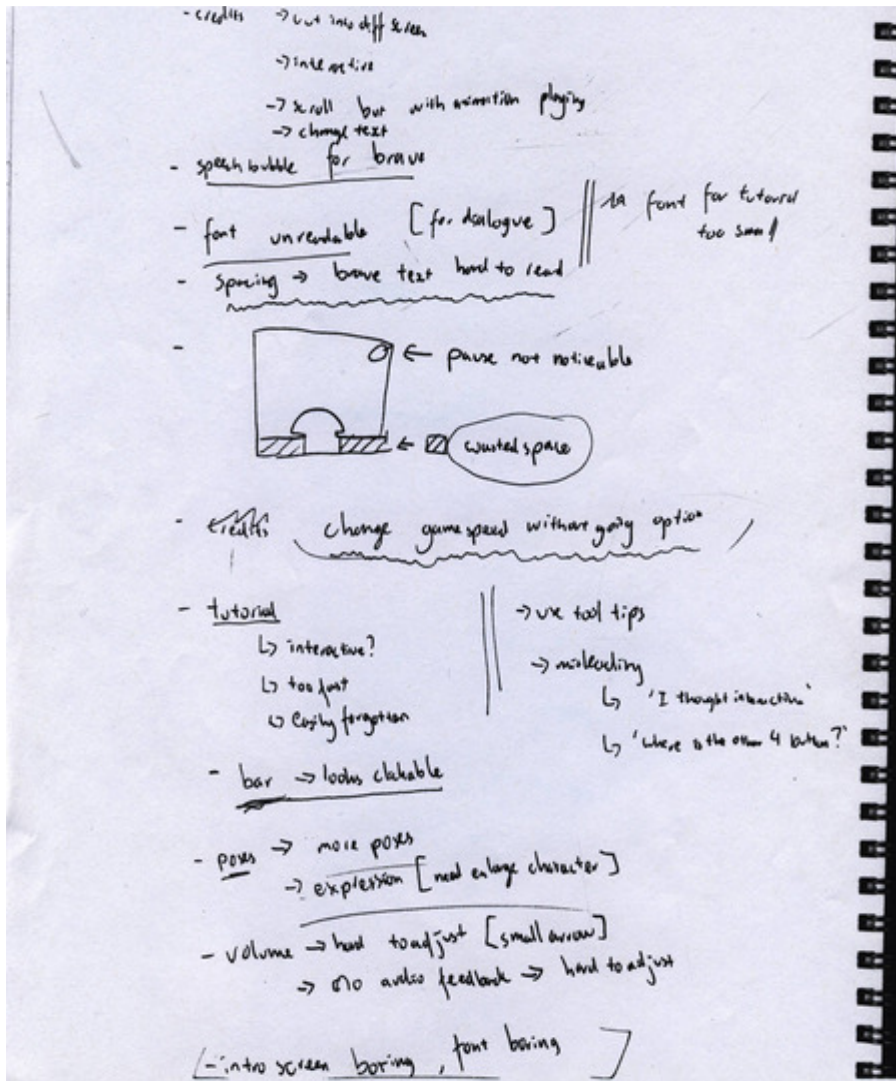 - credits → cut into diff screen
→ interactive
→ scroll but with animation playing
→ change text
- speech bubble for brave
- font unreadable [for dialogue]
↳ font for tutorial
too small
- spacing → brave text hard to read
-
← pause not noticeable
← wasted space
- credits change game speed without going option
- tutorial
↳ interactive?
↳ too fast
↳ easily forgotten
→ use tool tips
→ misleading
↳ 'I thought interactive'
↳ 'where is the other 4 button?'
- bar → looks clickable
- poses → more poses
→ expression [need enlarge character]
- volume → hard to adjust [small arrow]
→ no audio feedback → hard to adjust
[- intro screen boring, font boring]